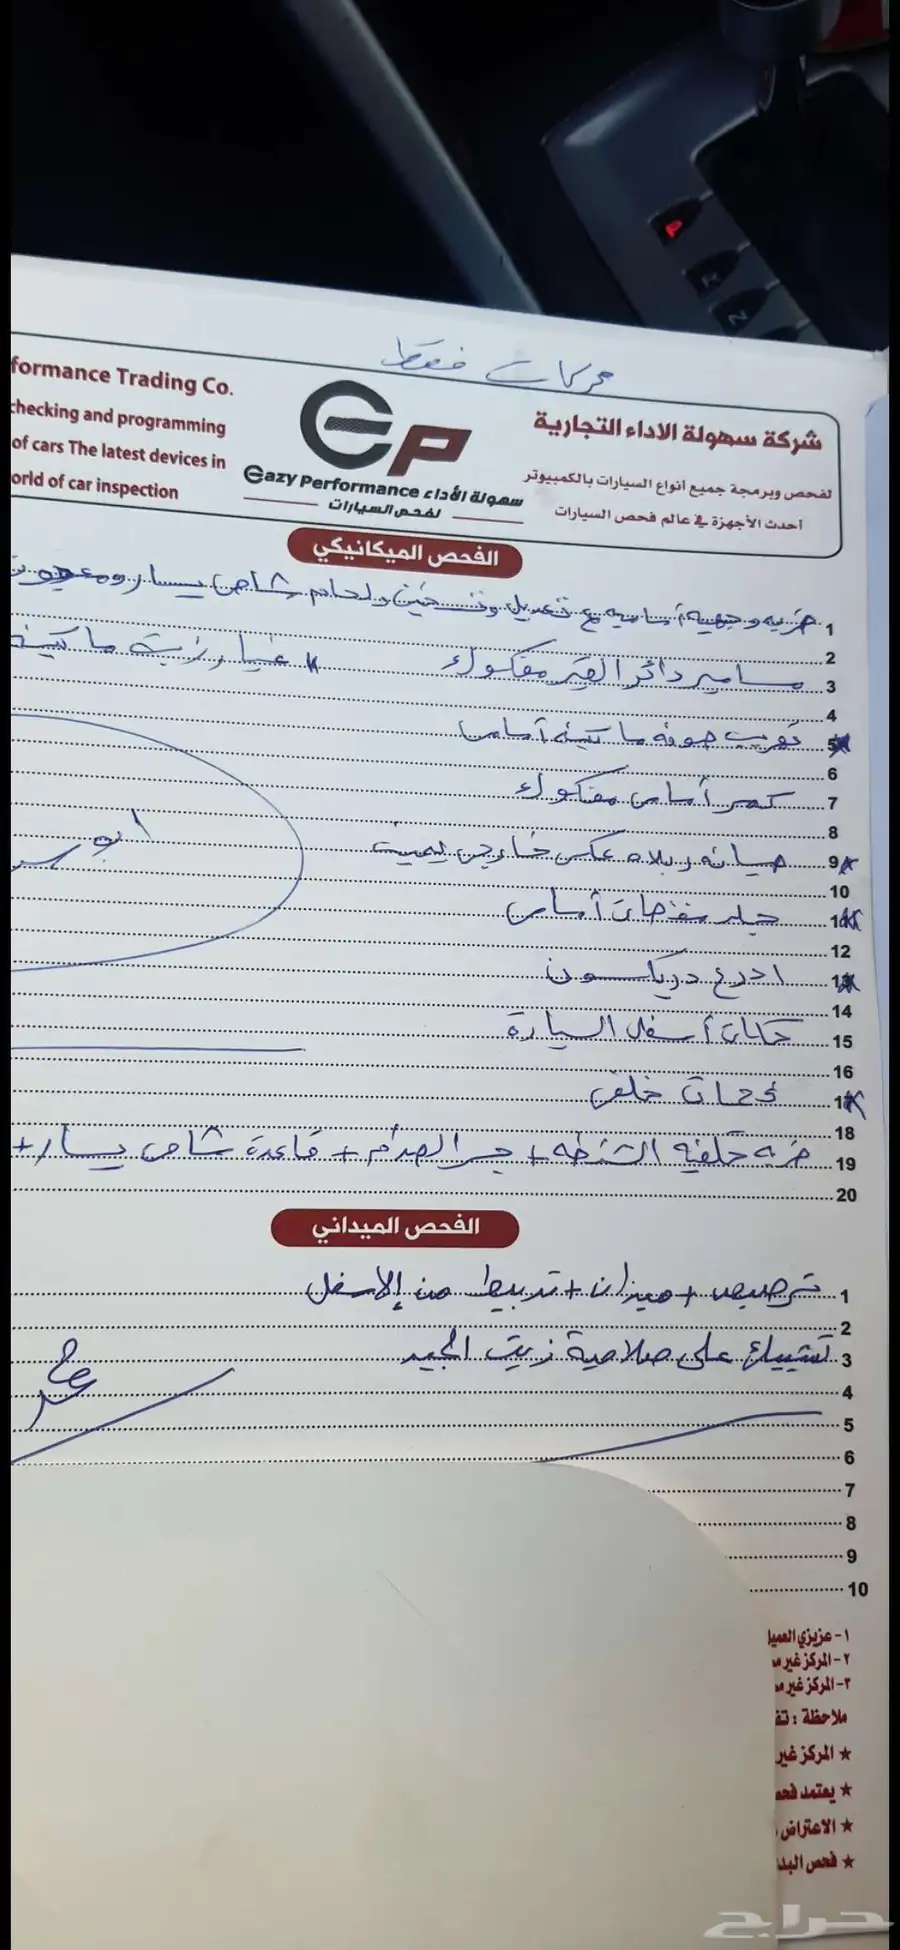 محركات فقط
formance Trading Co.
checking and programming
of cars The latest devices in
orld of car inspection
eP
eazy Performance سهولة الأداء
لفحص السيارات
شركة سهولة الاداء التجارية
لفحص وبرمجة جميع انواع السيارات بالكمبيوتر
احدث الأجهزة في عالم فحص السيارات
الفحص الميكانيكي
1 ضربه وجهية أساسيه مع تعديل ولحام شاص يسار
2
3 مسامير دائر القير مفكوك * غيار زيت ماكينة
4
5 تهريب صوفه ماكينة أساسي
6
7 كمر أساسي مفكوك
8
9 صيانه ربلاه عكس خارجي يمين
10
11 جلد مقصات أساسي
12
13 اذرع دركسون
14
15 حكات أسفل السيارة
16
17 فحمات خلفي
18
19 ضربه خلفيه الشنطه + جسر الصدام + قاعدة شاص يسار +
20
ابو
الفحص الميداني
1 ترصيص + ميزان + تربيط من الاسفل
2
3 تشييك على صلاحية زيت الجير
4
5
6
7
8
9
10
١- عزيزي العميل
٢- المركز غير م
٣- المركز غير م
ملاحظة : تف
★ المركز غير
★ يعتمد فحص
★ الاعتراض
★ فحص البد
حراج
P
R
N